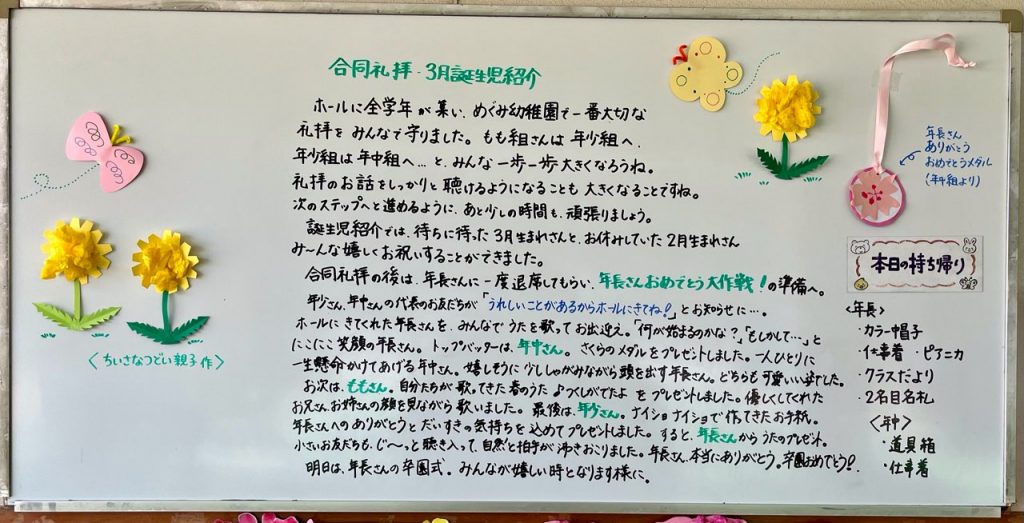 合同礼拝・3月誕生児紹介
ホールに全学年が集い、めぐみ幼稚園で一番大切な
礼拝をみんなで守りました。もも組さんは年少組へ、
年少組は年中組へ…と、みんな一歩一歩大きくなろうね。
礼拝のお話をしっかりと聴けるようになることも大きくなることですね。
次のステップへと進めるように、あと少しの時間も、頑張りましょう。
誕生児紹介では、待ちに待った3月生まれさんと、お休みしていた2月生まれさん
み〜んな嬉しくお祝いすることができました。
合同礼拝の後は、年長さんに一度退席してもらい、年長さんおめでとう大作戦!の準備へ。
年少さん、年中さんの代表のお友だちが「うれしいことがあるからホールにきてね!」とお知らせに…。
ホールにきてくれた年長さんを、みんなでうたを歌ってお出迎え。「何が始まるのかな?」「もしかして…」と
にこにこ笑顔の年長さん。トップバッターは、年中さん。さくらのメダルをプレゼントしました。一人ひとりに
一生懸命かけてあげる年中さん。嬉しそうに少ししゃがみながら頭を出す年長さん。どちらも可愛いい姿でした。
お次は、ももさん。自分たちが歌ってきた春のうた♪つくしがでたよをプレゼントしました。優しくしてくれた
お兄さんお姉さんの顔を見ながら歌いました。最後は、年少さん。ナイショナイショで作ってきたお手紙。
年長さんへのありがとうとだいすきの気持ちを込めてプレゼントしました。すると、年長さんからうたのプレゼント。
小さいお友だちも、じ〜〜っと聴き入って、自然と拍手が沸きおこりました。年長さん、本当にありがとう。卒園おめでとう!
明日は、年長さんの卒園式。みんなが嬉しい時となります様に。
<ちいさなつどい親子作>
年長さん
ありがとう
おめでとうメダル
(年中組より)
本日の持ち帰り
<年長>
・カラー帽子
・仕事着・ピアニカ
・クラスだより
・2名目名札
<年中>
・道具箱
・仕事着